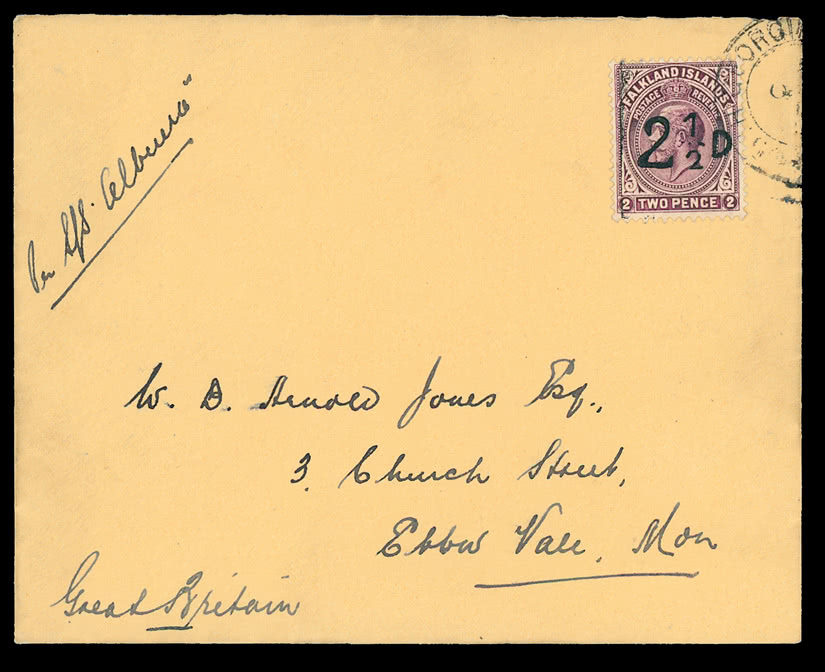 FALKLAND ISLANDS
POSTAGE REVENUE
2 1/2 D
2 TWO PENCE 2
Per S/S. "Albuera"
W. D. Arnold Jones Esq.,
3. Church Street,
Ebbw Vale, Mon
Great Britain